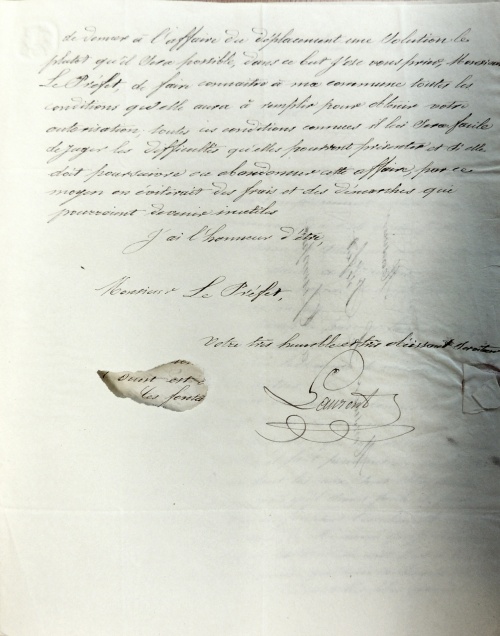 de donner à l'affaire du déplacement une solution le
plutot qu'il sera possible, dans ce but j'ose vous prier, Monsieur
Le Préfet, de faire connaitre à ma commune toutes les
conditions qu'elle aura à remplir pour obtenir votre
autorisation, toutes ces conditions connues il lui sera facile
de juger les difficultés qu'elles pourront présenter et si elle
doit poursuivre ou abandonner cette affaire, par ce
moyen on éviterait des frais et des démarches qui
pourraient devenir inutiles
J'ai l'honneur d'être
Monsieur Le Préfet,
Votre très humble et très obéissant serviteur
dont est
les fonds
Laurent